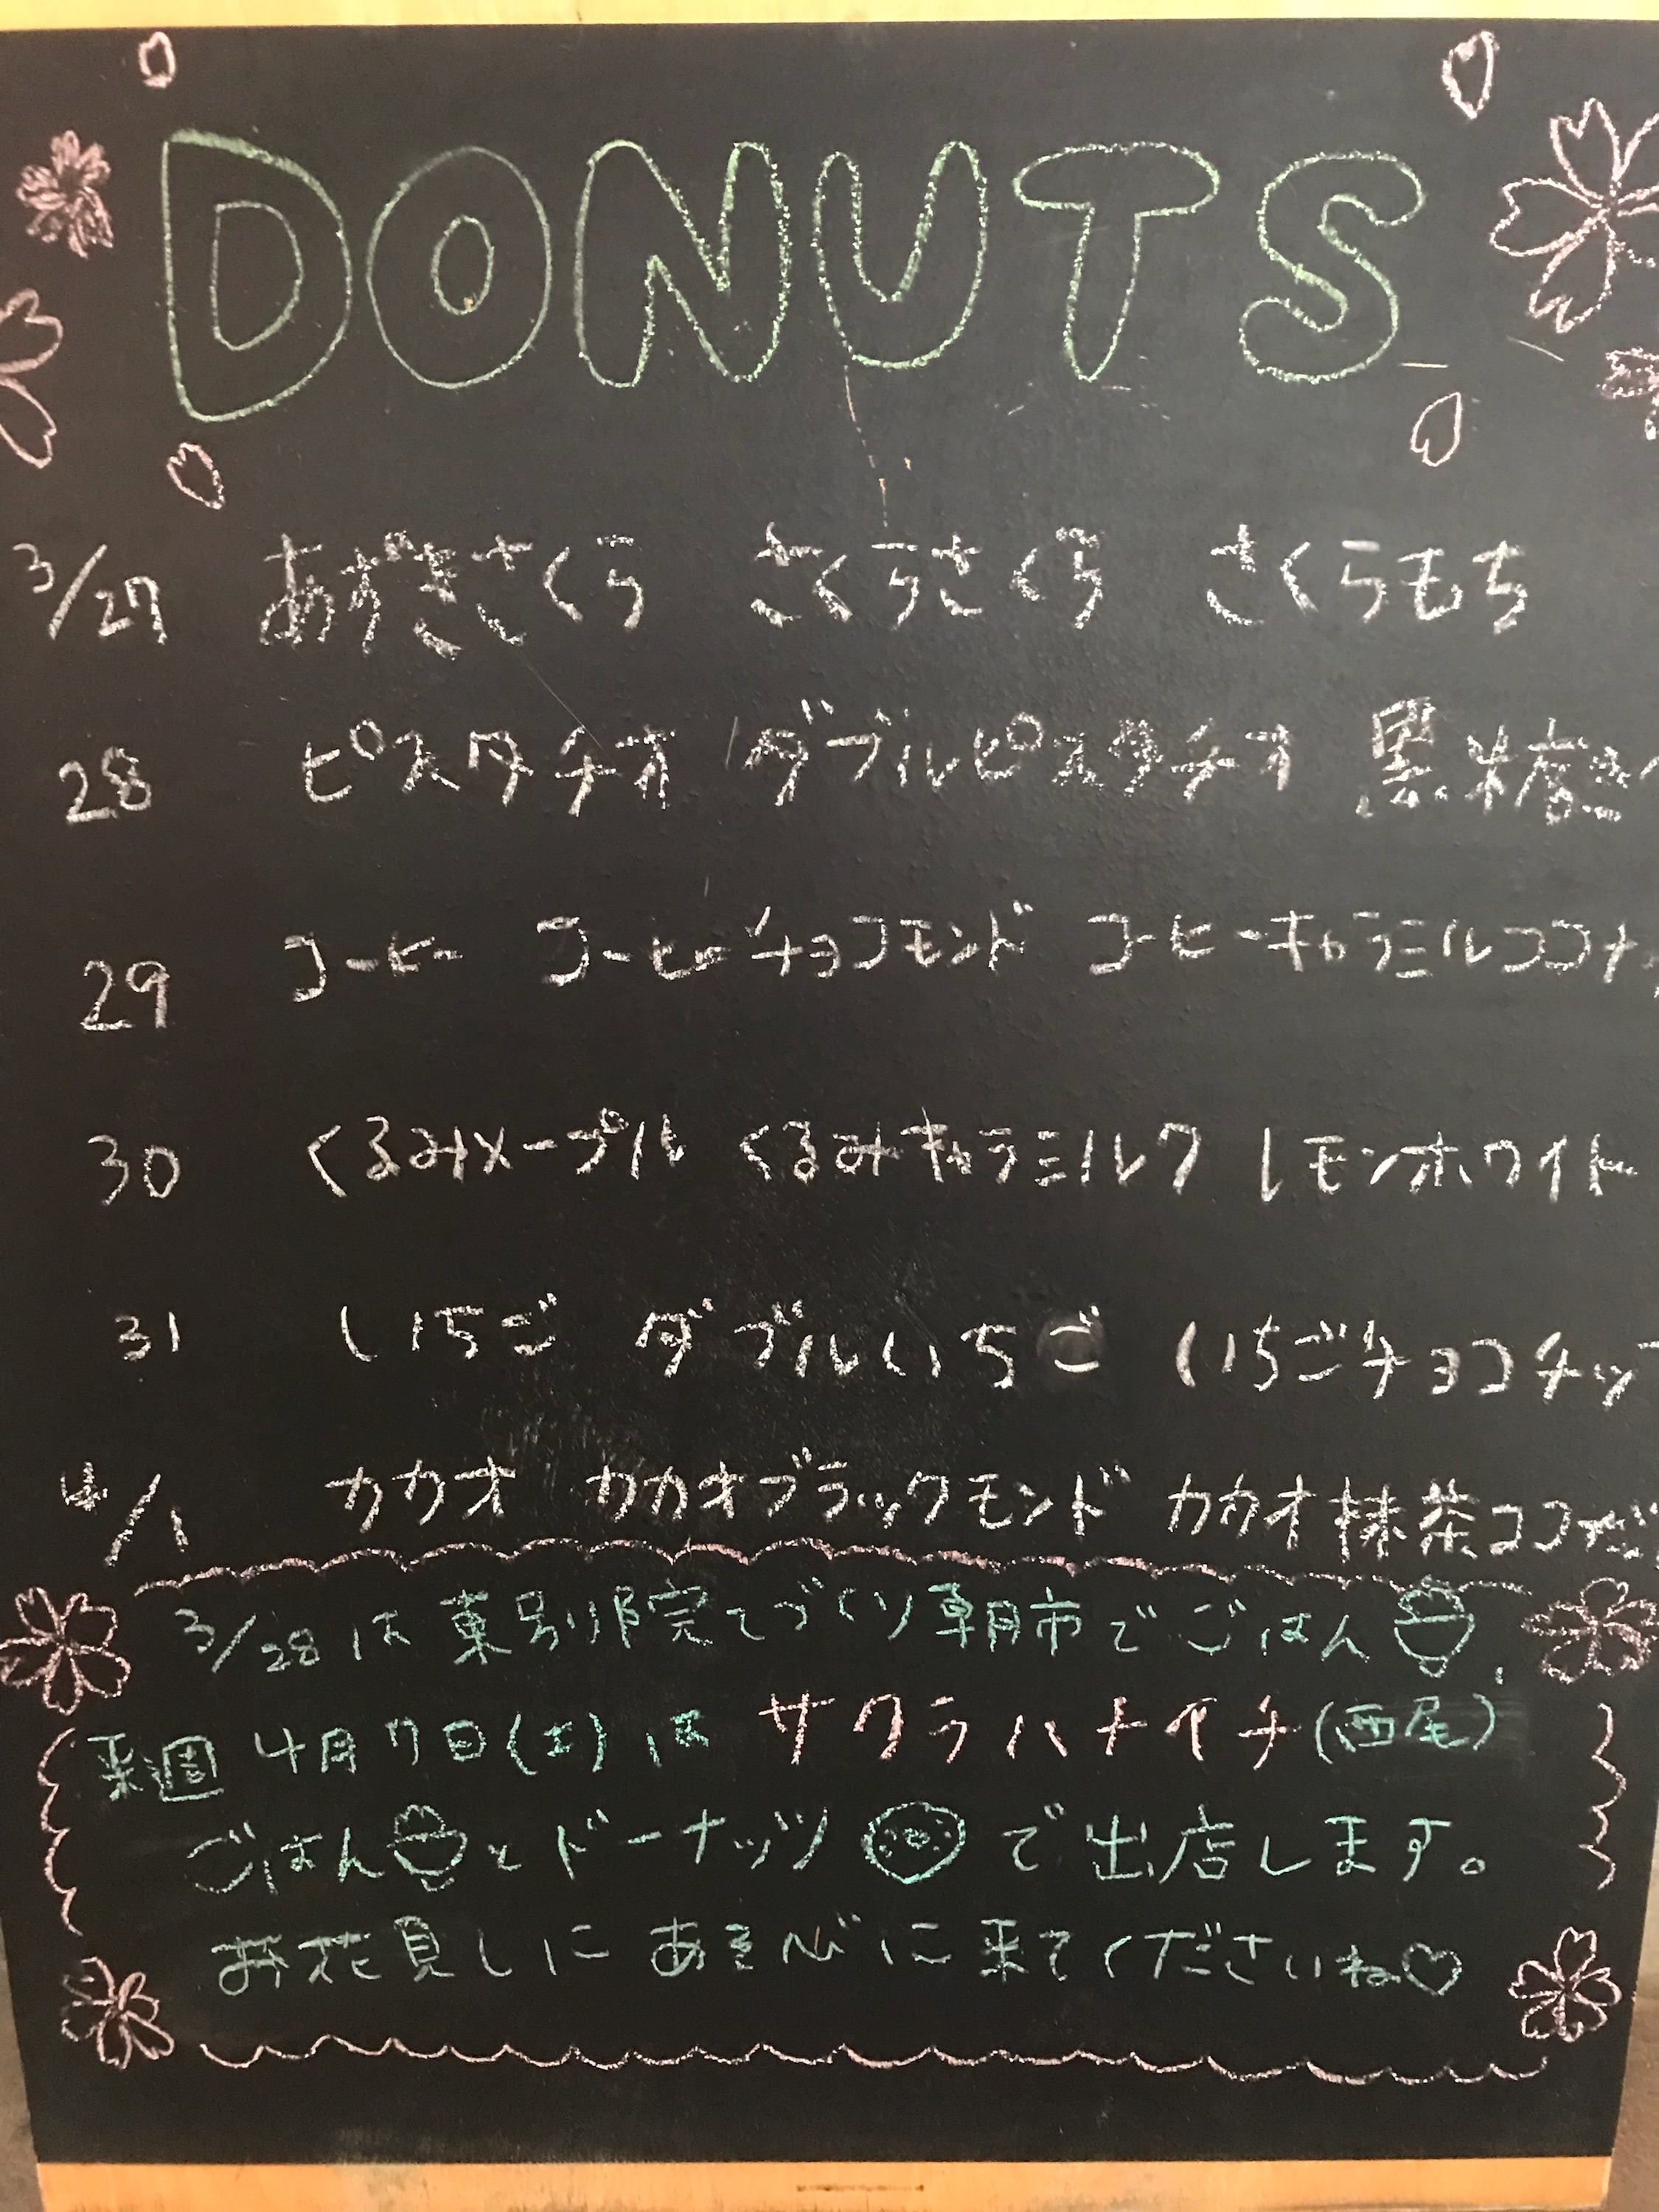 DONUTS
3/27 あずきさくら さくらさくら さくらもち
28 ピスタチオ ダブルピスタチオ 黒糖き
29 コーヒー コーヒーチョコモンド コーヒーキャラミルココナ
30 くるみメープル くるみキャラミルク レモンホワイト
31 いちご ダブルいちご いちごチョコチップ
4/1 カカオ カカオブラックモンド カカオ抹茶ココ
3/28は東別院てづくり朝市でごはん
来週4月7日(土)は サクラハナイチ(西尾)
ごはんとドーナッツで出店します。
お花見しにあそびに来てくださいね♡